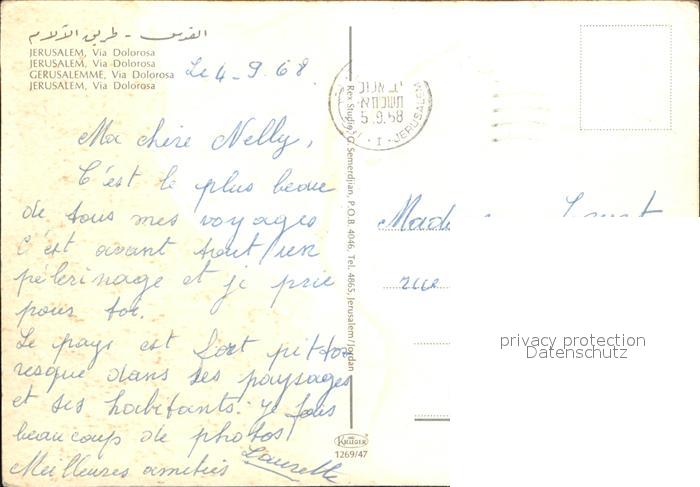 القدس - طريق الآلام
JERUSALEM, Via Dolorosa
JERUSALEM, Via Dolorosa
GERUSALEMME, Via Dolorosa
JERUSALEM, Via Dolorosa
Le 4-9.68.
Ma chère Nelly,
C'est le plus beau
de tous mes voyages
C'est avant tout un
pélerinage et je prie
pour toi.
Le pays est fort pitto-
resque dans ses paysages
et ses habitants. Je fais
beaucoup de photos
Meilleures amitiés
5.9.68
-I-JERUSALEM
Rex Studio, G. Semerdjian, P.O.B. 4046, Tel. 4865, Jerusalem/Jordan
KRÜGER
1269/47
rue
privacy protection
Datenschutz